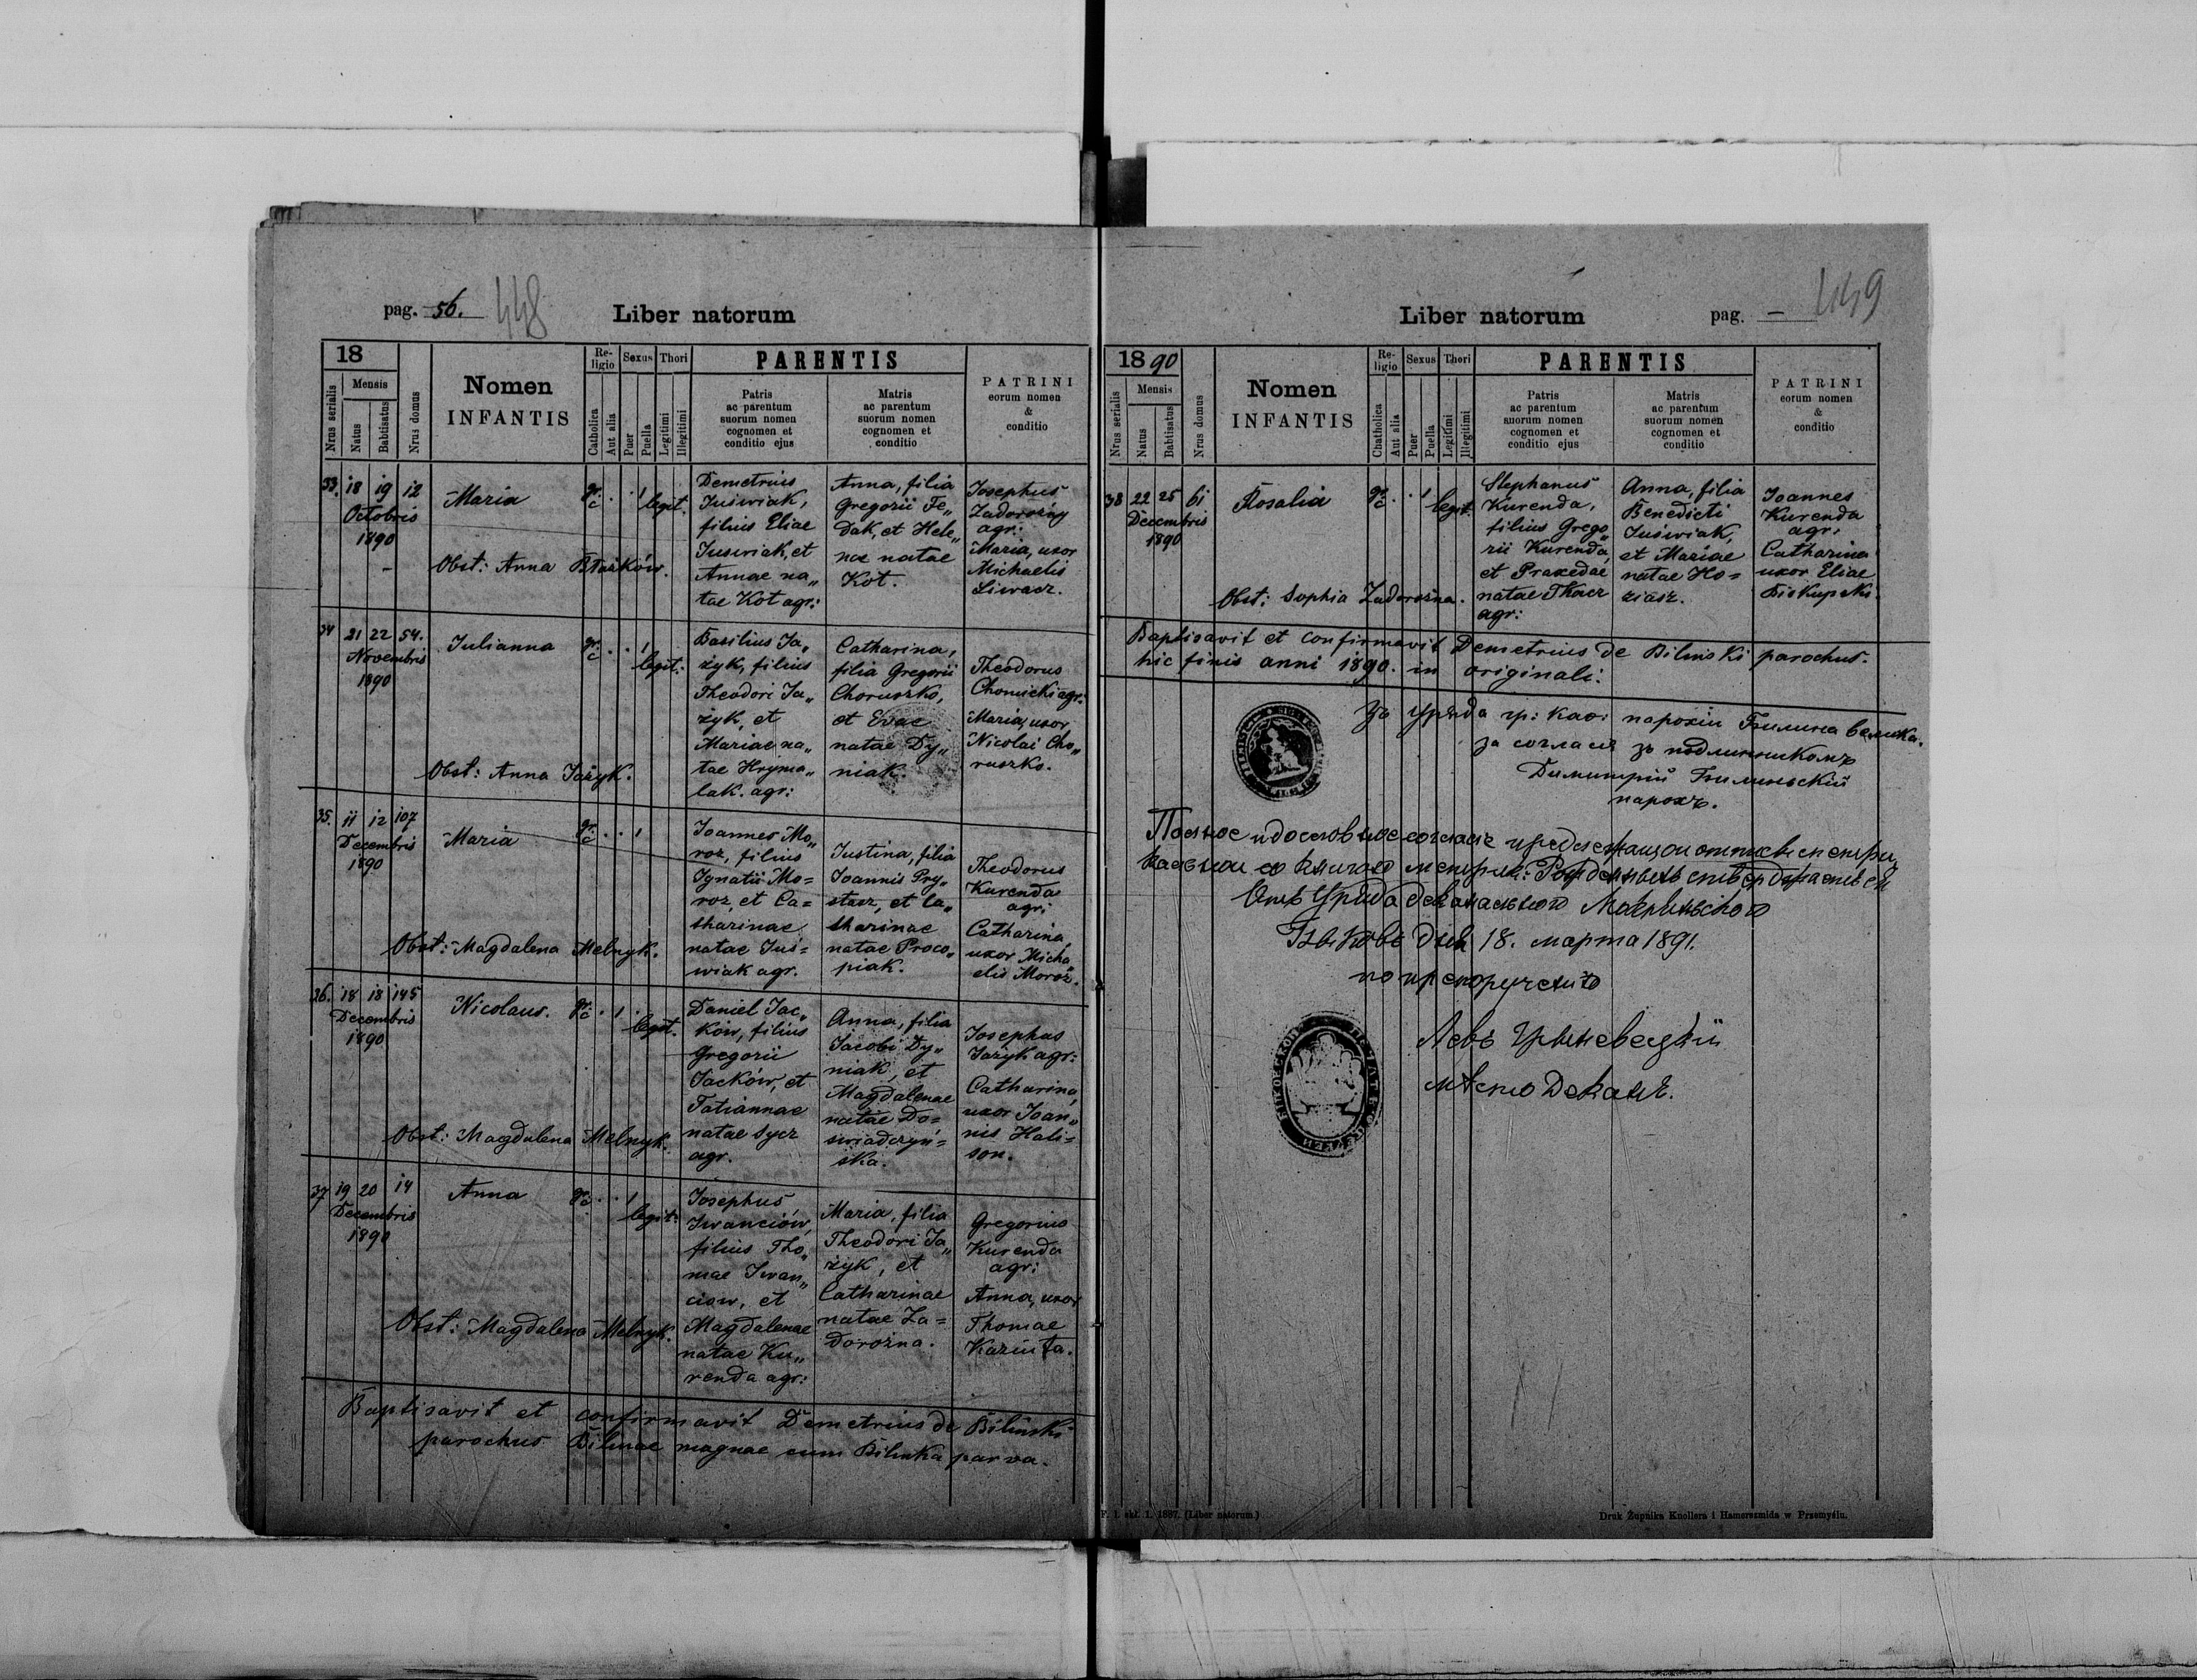 pag. 56. 448
Liber natorum
18
Nrus serialis
Mensis
Natus
Babtisatus
Nrus domus
Nomen
INFANTIS
Religio
Catholica
Aut alia
Sexus
Puer
Puella
Thori
Legitimi
Illegitimi
PARENTIS
Patris
ac parentum
suorum nomen
cognomen et
conditio ejus
Matris
ac parentum
suorum nomen
cognomen et
conditio
PATRINI
eorum nomen
&
conditio
33. 18 19 12
Octobris
1890
Maria
gr. c . . 1 legit.
Obst: Anna Błażków.
Demetrius
Juświak,
filius Eliae
Juświak, et
Annae na„
tae Kot agr:
Anna, filia
Gregorii Fe„
dak, et Hele„
nae natae
Kot.
Josephus
Zadorożny
agr:
Maria, uxor
Michaelis
Siwacz.
34 21 22 54.
Novembris
1890
Julianna
gr. c . . 1 legit:
Obst: Anna Jażyk.
Basilius Ja„
żyk, filius
Theodori Ja„
żyk, et
Mariae na„
tae Hryma„
lak. agr:
Catharina,
filia Gregorii
Choruszko,
et Evae
natae Dy„
niak.
Theodorus
Chomicki agr.
Maria, uxor
Nicolai Cho„
ruszko.
35. 11 12 107
Decembris
1890
Maria
gr. c . . 1
Obst: Magdalena Melnyk.
Joannes Mo„
roz, filius
Ignatii Mo=
roz, et Ca=
tharinae
natae Juś=
wiak agr.
Justina, filia
Joannis Pry„
stacz, et Ca„
tharinae
natae Proco„
piak.
Theodorus
Kurenda
agr:
Catharina,
uxor Micha
elis Moroz.
36. 18 18 145
Decembris
1890
Nicolaus.
gr. c . 1 . legit.
Obst: Magdalena Melnyk.
Daniel Jac„
ków, filius
Gregorii
Jacków, et
Tatiannae
natae Sycz
agr.
Anna, filia
Jacobi Dy„
niak, et
Magdalenae
natae Do=
świadczyń=
ska.
Josephus
Jażyk agr:
Catharina,
uxor Joan„
nis Hali=
son.
37 19 20 14
Decembris
1890
Anna
gr. c . . 1 legit:
Obst: Magdalena Melnyk.
Josephus
Iwanciów,
filius Tho„
mae Iwan„
ciow, et
Magdalenae
natae Ku„
renda agr:
Maria, filia
Theodori Ja„
żyk, et
Catharinae
natae Za=
dorożna.
Gregorius
Kurenda
agr:
Anna, uxor
Thomae
Baptisavit et confirmavit Demetrius de Biliński
parochus Bilinae magnae cum Bilinka parva.
Liber natorum
pag. — 449
18 90
Nrus serialis
Mensis
Natus
Babtisatus
Nrus domus
Nomen
INFANTIS
Religio
Chatholica
Aut alia
Sexus
Puer
Puella
Thori
Legitimi
Illegitimi
PARENTIS
Patris
ac parentum
suorum nomen
cognomen et
conditio ejus
Matris
ac parentum
suorum nomen
cognomen et
conditio
PATRINI
eorum nomen
&
conditio
38 22 25 61
Decembris
1890
Rosalia
gr. c . . 1 legit.
Obst: Sophia Zadorożna.
Stephanus
Kurenda,
filius Grego„
rii Kurenda,
et Praxedae
natae Tkacz
agr:
Anna, filia
Benedicti
Juświak,
et Mariae
natae Ho=
ziasz.
Joannes
Kurenda
agr:
Catharina
uxor Eliae
Biskupski.
Baptisavit et confirmavit Demetrius de Bilinski parochus.
hic finis anni 1890. in originali.
Зъ уряда гр: као: парохіи Билина велика.
за согласіе зъ подлинникомъ
Димитрій Билиньскій
парохъ.
Полное и дословное согласіе предлежащои
кальнои со книгою метрик:
Отъ Уряда деканального
дня 18. марта 1891.
по препорученію
Левъ
мѣсто декана.
F. 1. skł. 1. 1887. (Liber natorum.)
Druk Żupnika Knollera i Hamerszmida w Przemyślu.